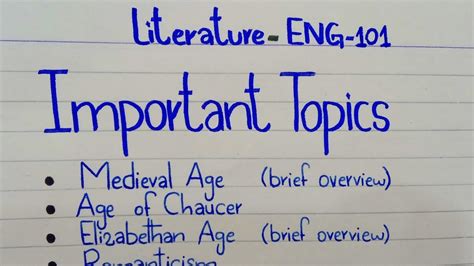 Literature - ENG-101
Important Topics
• Medieval Age (brief overview)
• Age of Chaucer
• Elizabethan Age (brief overview)
• Romanticism